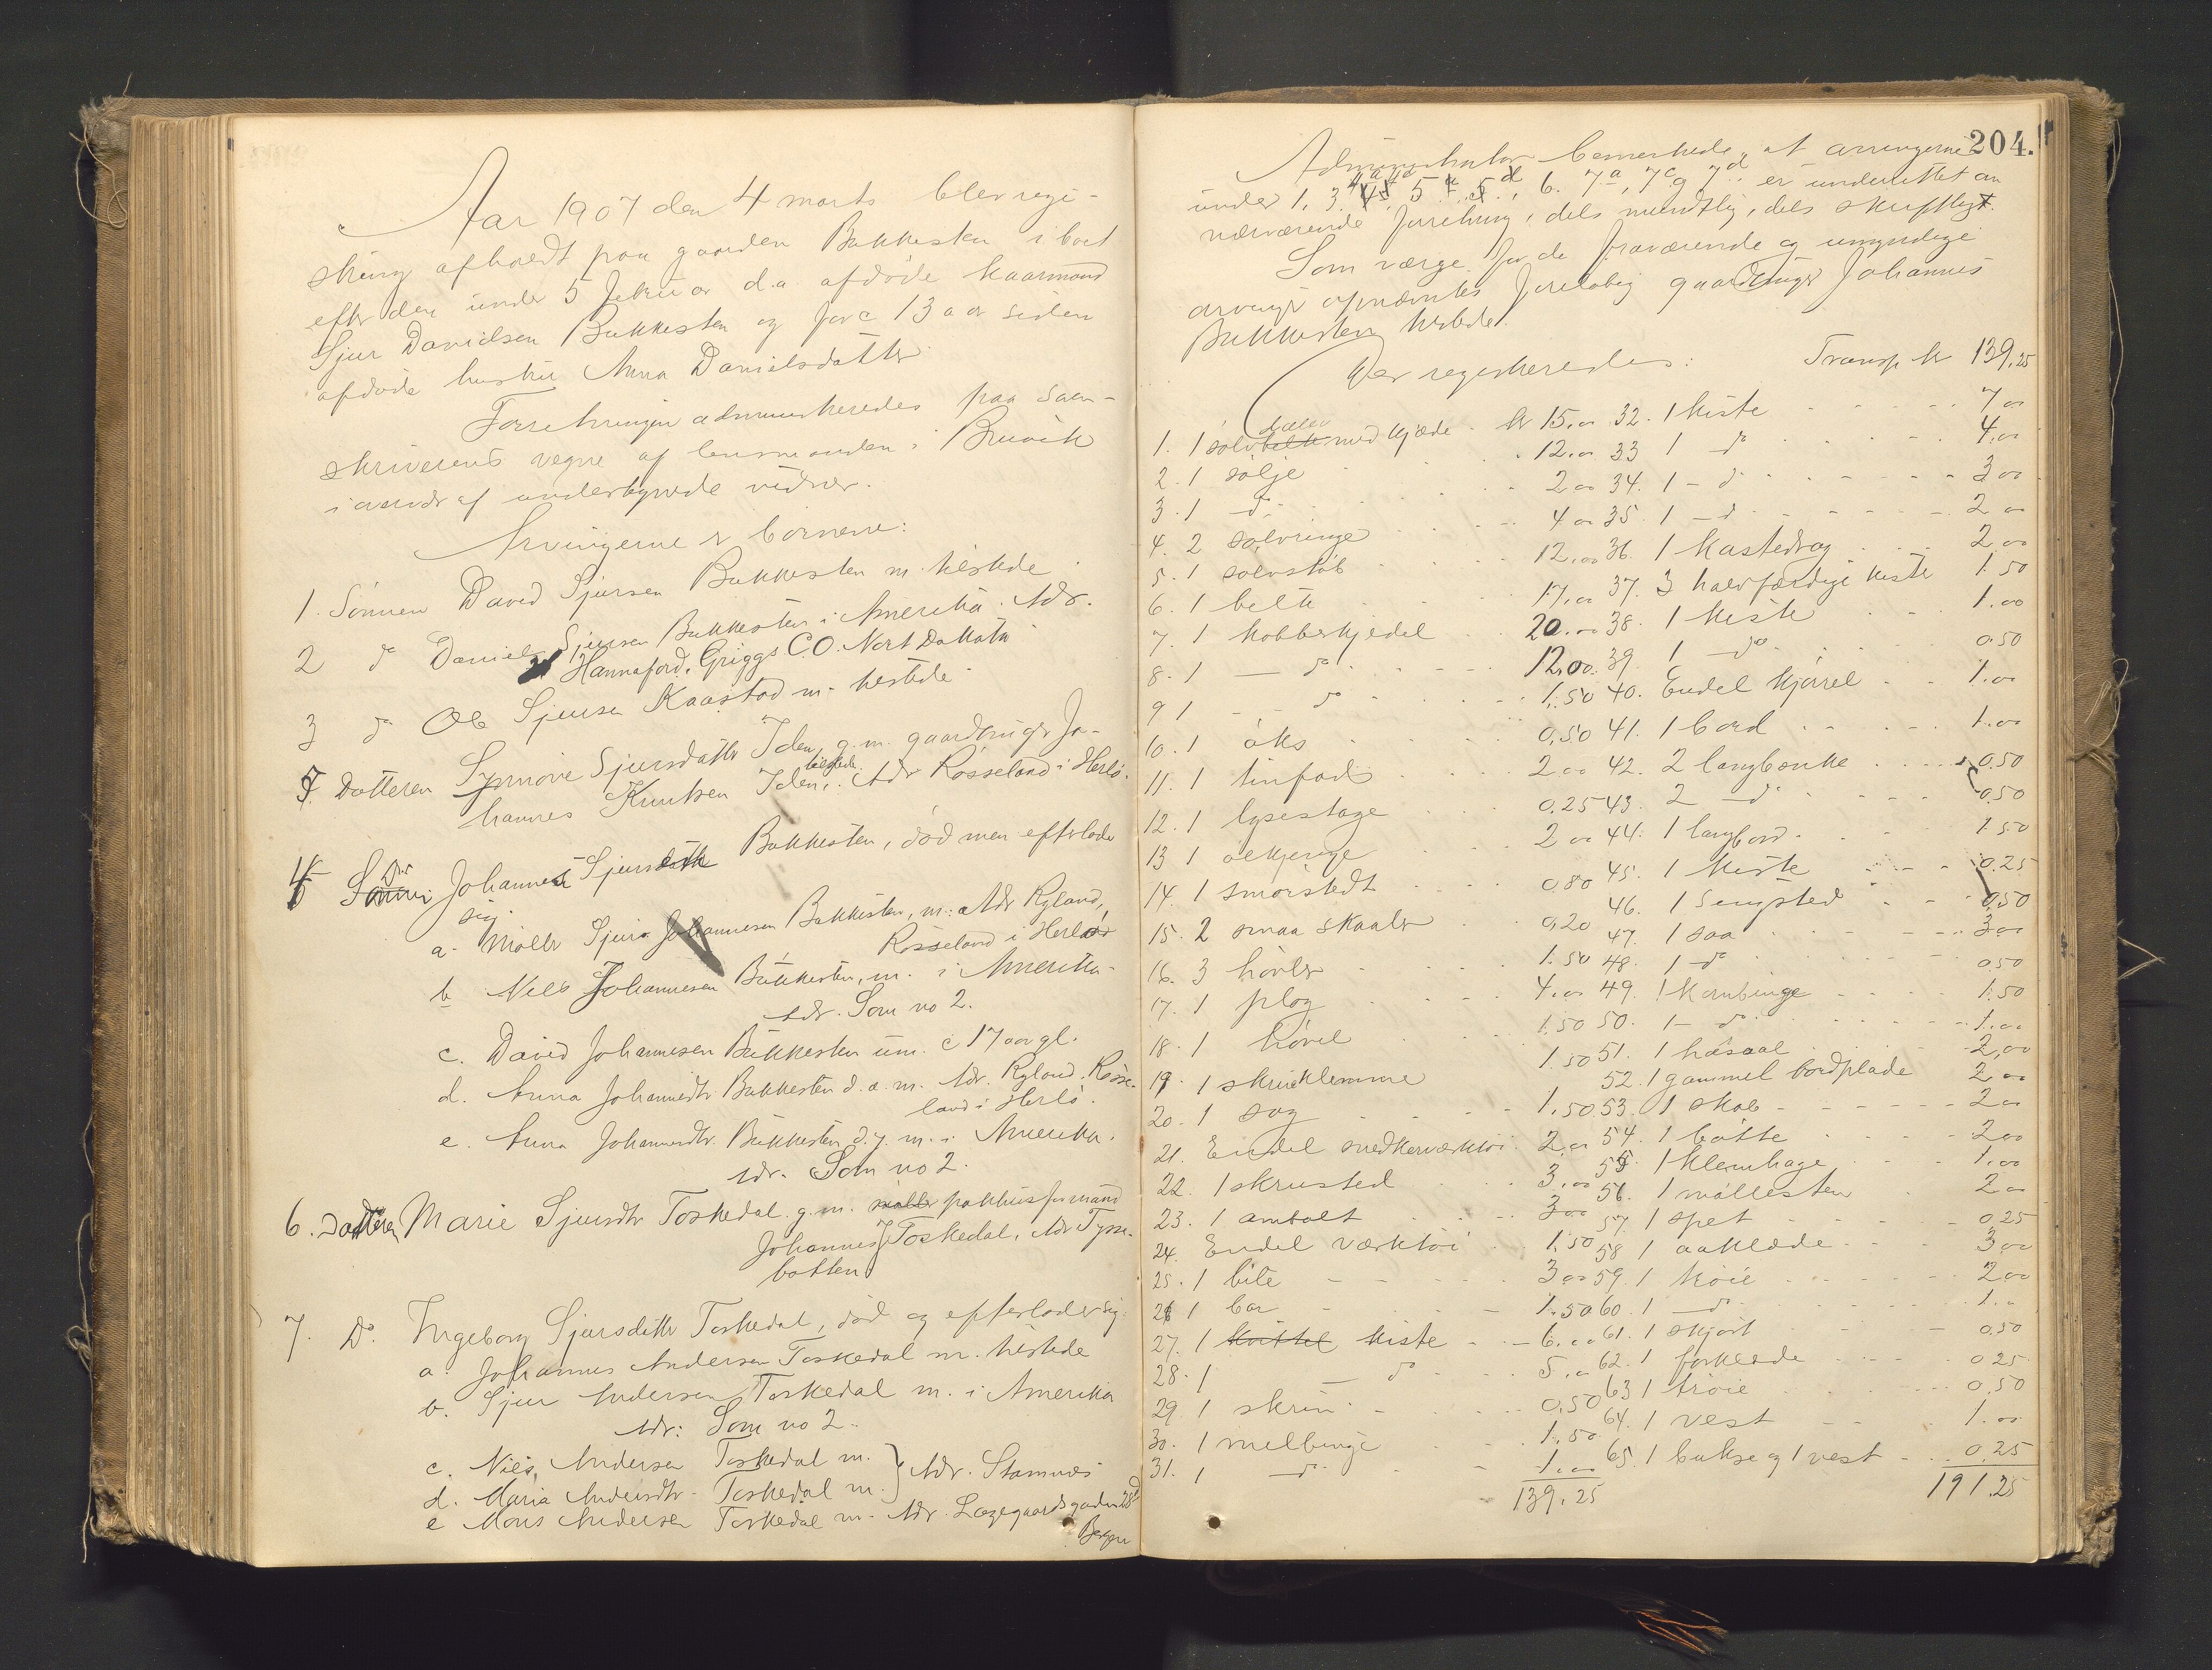 Aar 1907 den 4 marts blev regi-
string afholdt paa gaarden Bukkesten i boet
efter den under 5 februar d.a. afdøde kaarmand
Sjur Davidsen Bukkesten og for c 13 aar siden
afdøde hustru Anna Danielsdatter.
Forretningen administreredes paa soren-
skriverens vegne af lensmanden i Bruvik
i overvær af undertegnede vidner.
Arvingerne er børnene:
1. Sønnen David Sjursen Bukkesten m. tilstede
2 do Daniel Sjursen Bukkesten i Amerika. Adr.
Hannaford, Griggs CO. Nort Dakota
3 do Ole Sjursen Kaastad m. tilstede
5. Datteren Synnøve Sjursdatter Iden, g.m. gaardbruger Jo-
hannes Knutsen Iden, tilstede. Adr Rosseland i Herlø.
4 Sønnen Johannes Sjursen Bukkesten, død men efterlader
sig
a. Møller Sjur Johannesen Bukkesten, m: Adr Ryland,
Rosseland i Herlø
b Nils Johannesen Bukkesten, m. i Amerika.
Adr. Som no 2.
c. David Johannesen Bukkesten um. c 17 aar gl.
d. Anna Johannesdtr. Bukkesten d.æ. m. Adr. Ryland. Rosse-
land i Herlø.
e. Anna Johannesdtr. Bukkesten d.y. m. i Amerika.
Adr. Som no 2.
6. Datteren Marie Sjursdtr Toskedal g.m. møller pakhusformand
Johannes J Toskedal, Adr Tysse-
botten
7. Do. Ingeborg Sjursdatter Toskedal, død og efterlader sig:
a. Johannes Andersen Toskedal m. tilstede
b. Sjur Andersen Toskedal m. i Amerika
Adr: Som no 2.
c. Nils Andersen Toskedal m. } Adr. Stamnes
d. Maria Andersdtr. Toskedal m.
e Mons Andersen Toskedal m. Adr. Lægegaardsgaden 28
Bergen
204.
Administrator bemerkede, at arvingerne
under 1, 3, 4a 4d 5, 6. 7a, 7c og 7d er underrettet om
nærværende forretning, dels mundtlig, dels skriftligt.
Som værge for de fraværende og umyndige
arvinger opnævntes foreløbig gaardbruger Johannes
Bukkesten tilstede.
Der registreredes: Transp. kr 139,25
1. 1 sølvbelte med kjæde kr 15,00 32. 1 kiste 7 00
2. 1 sølje 12,00 33 1 do 4,00
3. 1 do 2 00 34. 1 - do 3 00
4. 2 sølvringe 4 00 35. 1 - do 2 00
5. 1 sølvstøb 12,00 36. 1 kastedrog 2 00
6. 1 belte 17,00 37. 3 halvfærdige kister 1.50
7. 1 kobberkjedel 20.00 38. 1 kiste 1.00
8. 1 - do 12,00 39. 1 - do 0.50
9 1 - do 1,50 40. Endel kjørel 1.00
10. 1 øks 0,50 41. 1 bord 1.00
11. 1 tinfad 2 00 42. 2 langbænke 0.50
12. 1 lysestage 0,25 43. 2 - do 0,50
13 1 ølkjenge 2 00 44. 1 langbord 1.50
14. 1 smørstedt 0,80 45. 1 kiste 0.25
15. 2 smaa skaaler 0,20 46. 1 sengsted 0,50
16. 3 høvler 1.50 47. 1 saa 3 00
17. 1 plog 4.00 48. 1 - do 0.50
18. 1 høvel 1.50 49. 1 kornbinge 1.50
19. 1 skrueklemme 1.50 50. 1 - do 1.00
20. 1 sag 1.50 51. 1 hæsaal 2,00
21. Endel snedkerværktøi 2,00 52. 1 gammel bordplade 2,00
22. 1 skrusted 3,00 53. 1 skab 2 00
23. 1 ambolt 3 00 54. 1 bøtte 2 00
24. Endel værktøi 1.50 55. 1 klemhage 1.00
25. 1 bile 3 00 56. 1 møllesten 2 00
26 1 bor 1.50 57. 1 spet 0,25
27. 1 kittel kiste 6.00 58 1 aaklæde 3 00
28. 1 do 5.00 59. 1 køie 2 00
29 1 skrin 0,50 60. 1 - do 1.
30. 1 melbinge 1,50 61. 1 skjørt 0,50
31. 1 - do 1.00 62. 1 forklæde 0 25
139.25 63 1 trøie 0,50
64. 1 vest 1.00
65. 1 bukse og 1 vest 0.25
191.25